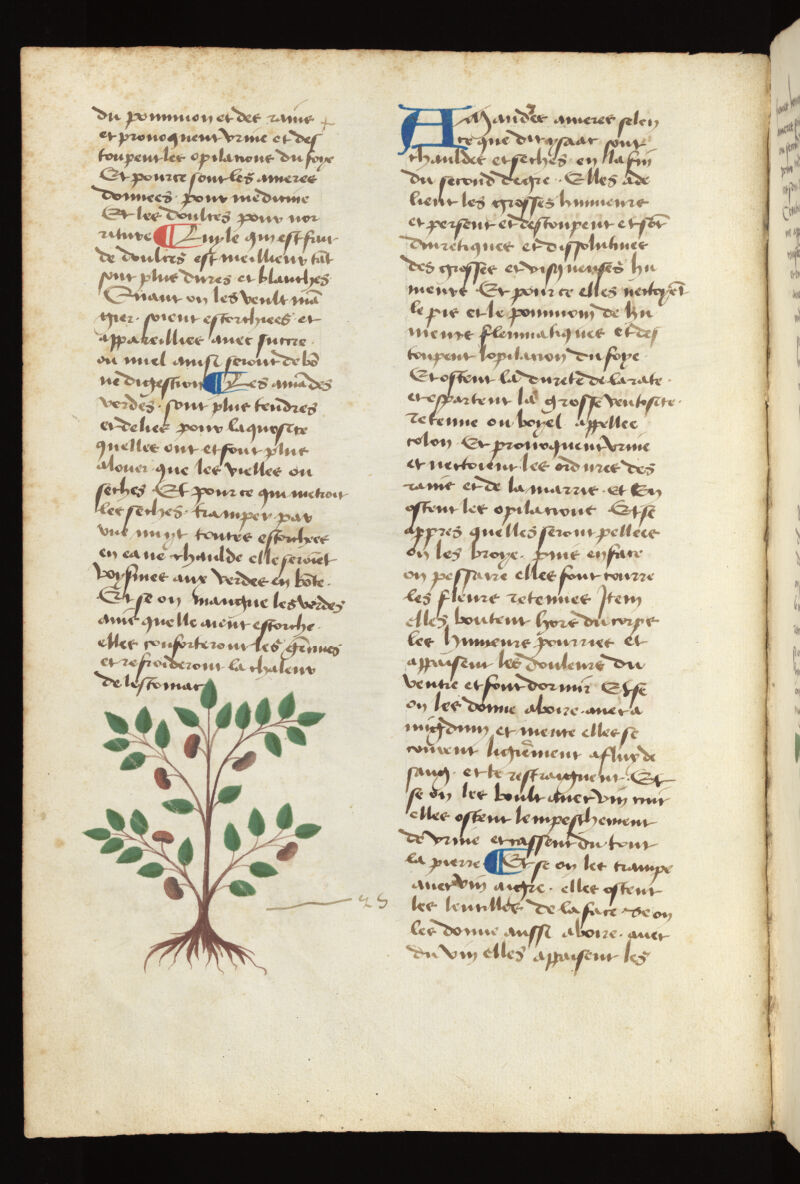 du pommon et des rains
et provoquent urine et des
toupent les opilations du foye
Et pource sont les ameres
donnees pour medicine
Et les doulces pour nor
riture ¶ Luyle qui est fait
de doulces est meilleur tāt
sont plus dures et blanches
Quant on les veult mā
gier · soient escorchiees et
appareillies avec succre ·
ou miel ainsi seront de bō
ne digestion ¶ Les amādes
verdes · sont plus tendres
et delies pour laquosite
quelles ont et font plus
a louer · que les vielles ou
seches Et pour ce qui mettroit
les seches · tramper par
une nuyt toutes escorchees
en eaue chaulde elle seroiēt
voysines aux verdes en bōte ·
Et se on mangue les verdes
ains quelle aient escorche ·
elles conforteront les gēcives
et refroideront la chaleur
de lestomac
28
Amandes ameres selon
ce que dit ysaac sont
chauldes et seches · en la fin
du second degre · Elles a de
lient les grosses humeurs
et persent et destoupent et sōt
diuretiques et dissolutives
des grosses et visqueuses hu
meurs · Et pour ce elles nectoyēt
le pis et le pommon de hu
meurs flenmatiques et des
toupent lopilacion du foye ·
Et ostent la durete de la rate ·
et espartent la grosse ventosite ·
retenue ou boyel appelle
colon · Et provoquent urine
et nectoient les ordures des
rains et de la marris · et en
ostent les opilations Et se
appres quelles seront pellees
on les broye · puis en face
on pessaire elles font courre
les fleurs retenues Item
elles boutent hors du corps
les humeurs pourries et
appaisent les douleurs du
ventre et font dormir Et se
on les donne a boire · avec a
migdum et mente elles se
courent ligierement a flux de
sang · et le restraignent · Et
se on les boult avec vin cuit
elles ostent lempeschement
de urine et cassent du tout
la pierre ¶ Et se on les trampe
avec vin aigre · elles ostent
les lentilles de la face Se on
les donne aussi a boire · avec
du vin elles appaisent les